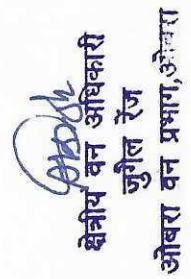 क्षेत्रीय वन अधिकारी
जुगैल रेंज
ओबरा वन प्रभाग,ओबरा